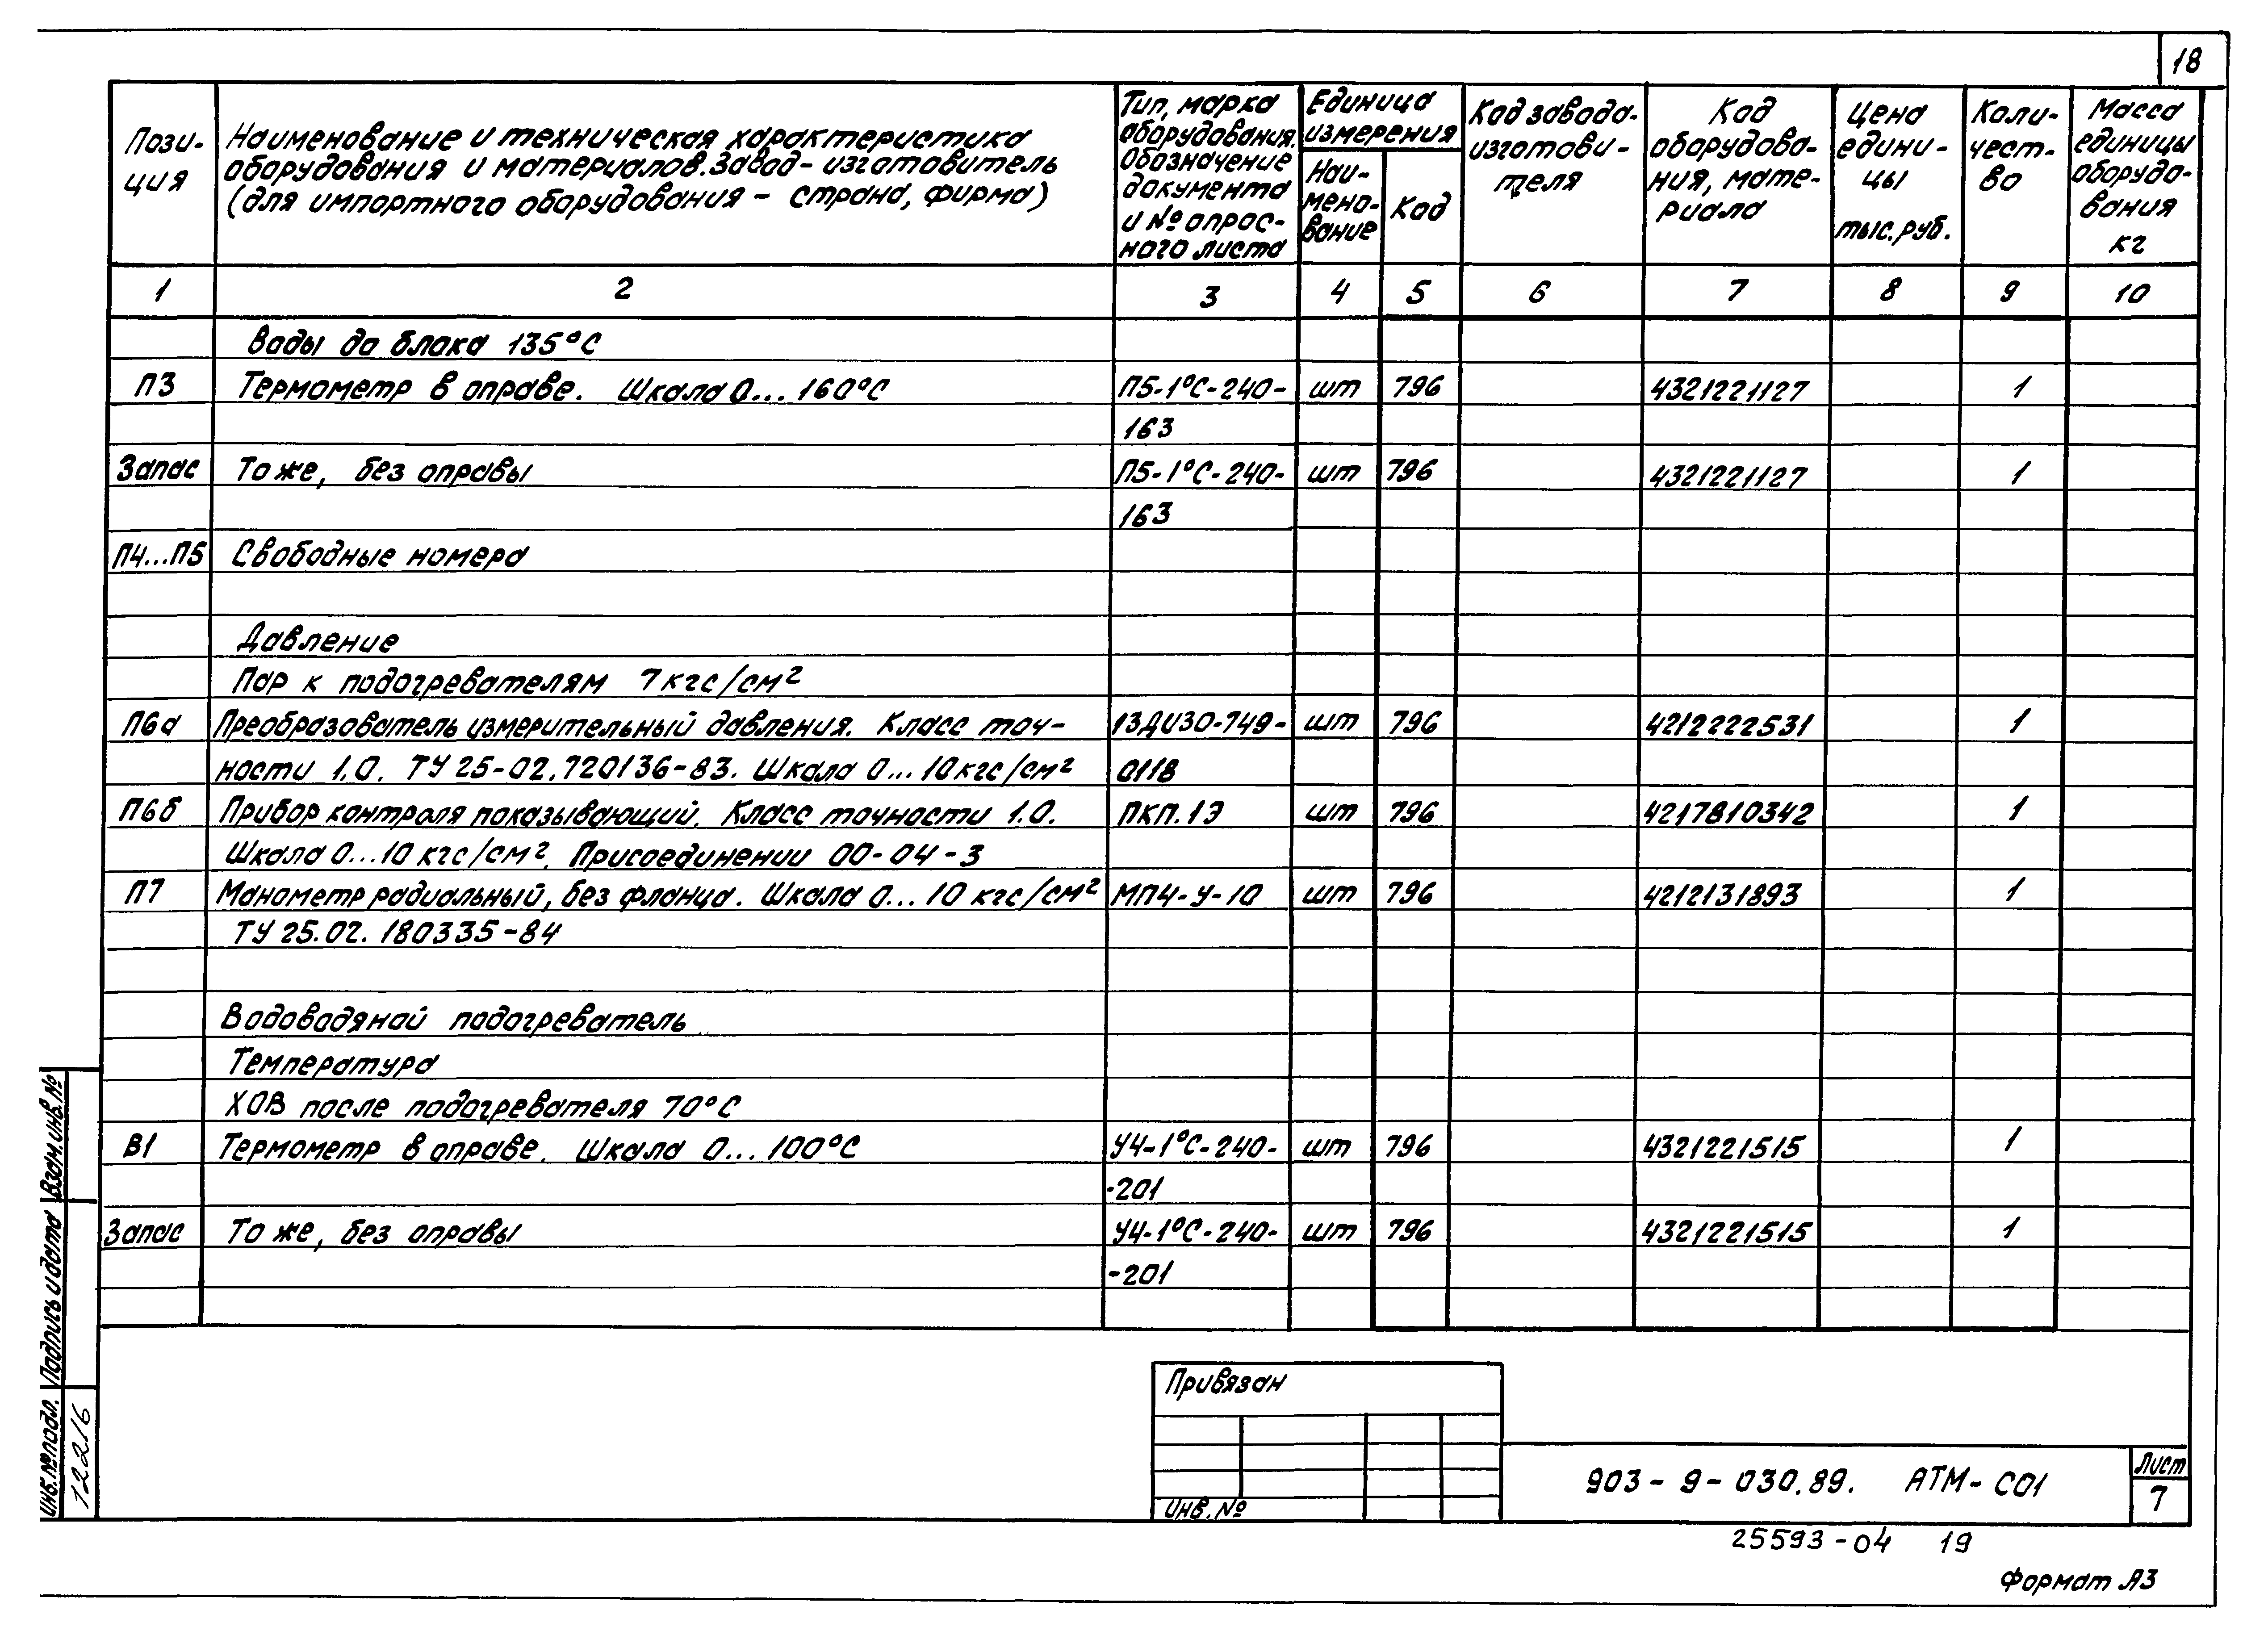 18
Пози-
ция
Наименование и техническая характеристика
оборудования и материалов. Завод-изготовитель
(для импортного оборудования - страна, фирма)
Тип, марка
оборудования.
Обозначение
документа
и № опрос-
ного листа
Единица
измерения
Наи-
мено-
вание
Код
Код завода-
изготови-
теля
Код
оборудова-
ния, мате-
риала
Цена
едини-
цы
тыс. руб.
Коли-
чест-
во
Масса
единицы
оборудо-
вания
кг
1 2 3 4 5 6 7 8 9 10
Воды до блока 135°С
П3 Термометр в оправе. Шкала 0...160°С П5-1°С-240- шт 796 4321221127 1
163
Запас То же, без оправы П5-1°С-240- шт 796 4321221127 1
163
П4...П5 Свободные номера
Давление
Пар к подогревателям 7 кгс/см²
П6а Преобразователь измерительный давления. Класс точ- 13ДИ30-749- шт 796 4212222531 1
ности 1.0. ТУ 25-02.720136-83. Шкала 0...10 кгс/см² 0118
П6б Прибор контроля показывающий. Класс точности 1.0. ПКП.1Э шт 796 4217810342 1
Шкала 0...10 кгс/см². Присоединении 00-04-3
П7 Манометр радиальный, без фланца. Шкала 0...10 кгс/см² МП4-У-10 шт 796 4212131893 1
ТУ 25.02.180335-84
Водоводяной подогреватель
Температура
ХОВ после подогревателя 70°С
В1 Термометр в оправе. Шкала 0...100°С У4-1°С-240- шт 796 4321221515 1
-201
Запас То же, без оправы У4-1°С-240- шт 796 4321221515 1
-201
Взам. инв. №
Подпись и дата
Инв. № подл.
12216
Привязан
Инв. №
903-9-030.89. АТМ-СО1
Лист
7
25593-04 19
Формат А3